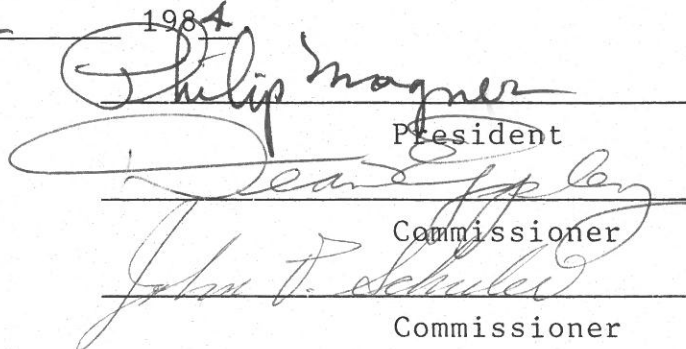 1984
Philip Magner
President
Dean Eppley
Commissioner
John P. Schuler
Commissioner